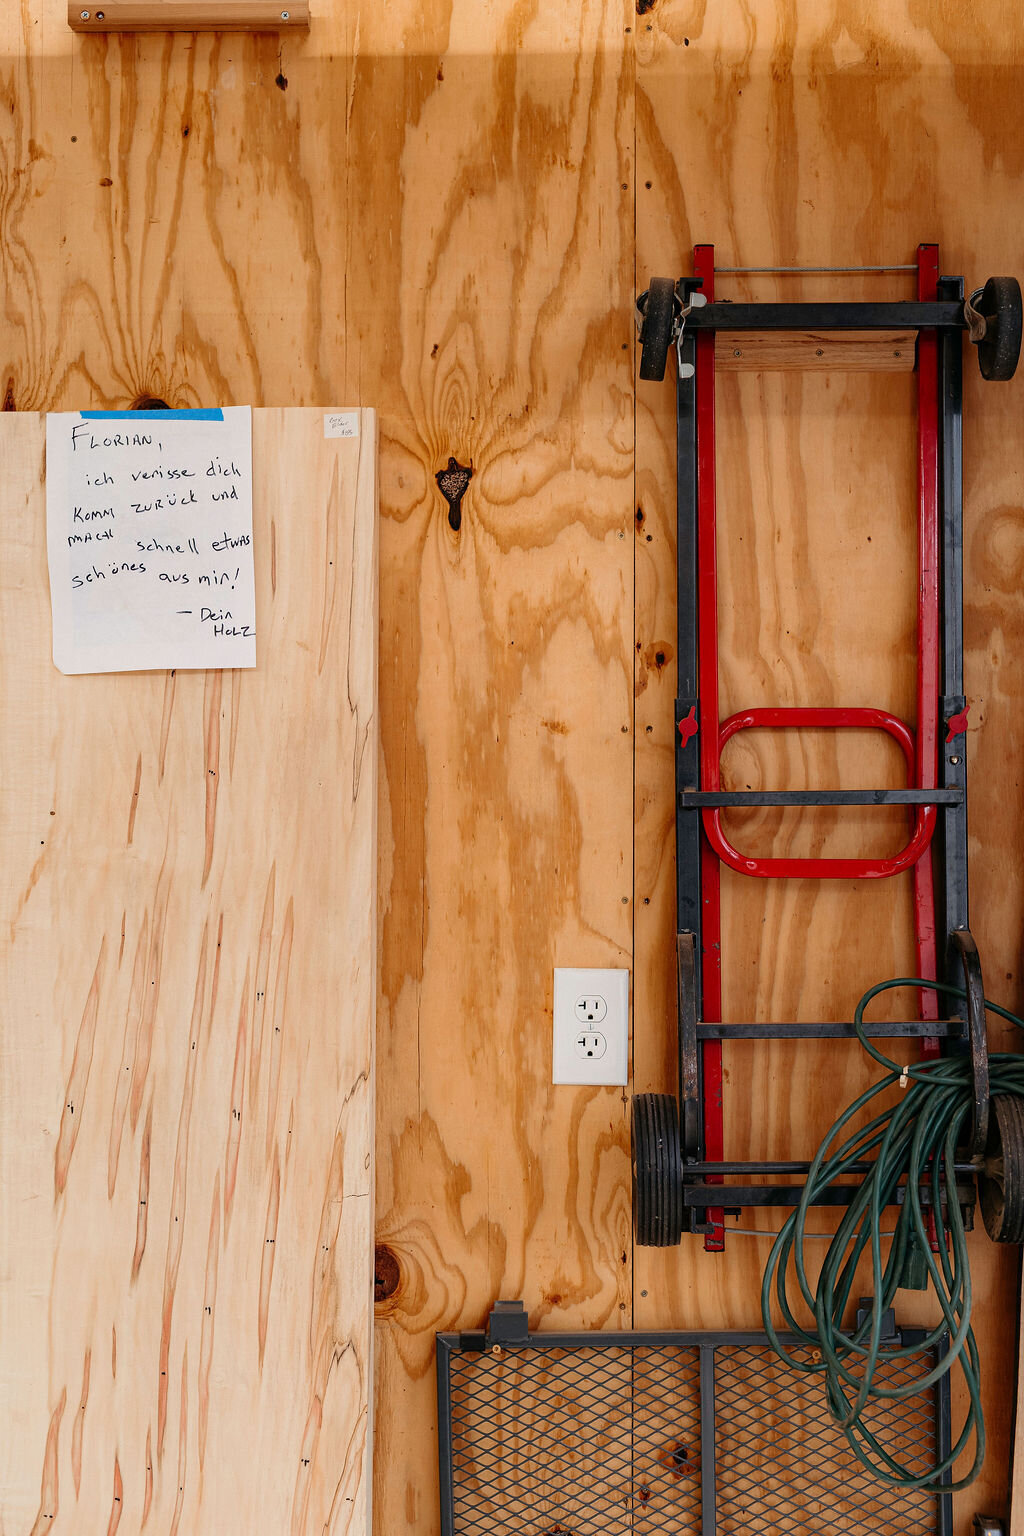 FLORIAN,
ich verisse dich
Komm zurück und
mach schnell etwas
schönes aus mir!
— Dein
HOLZ